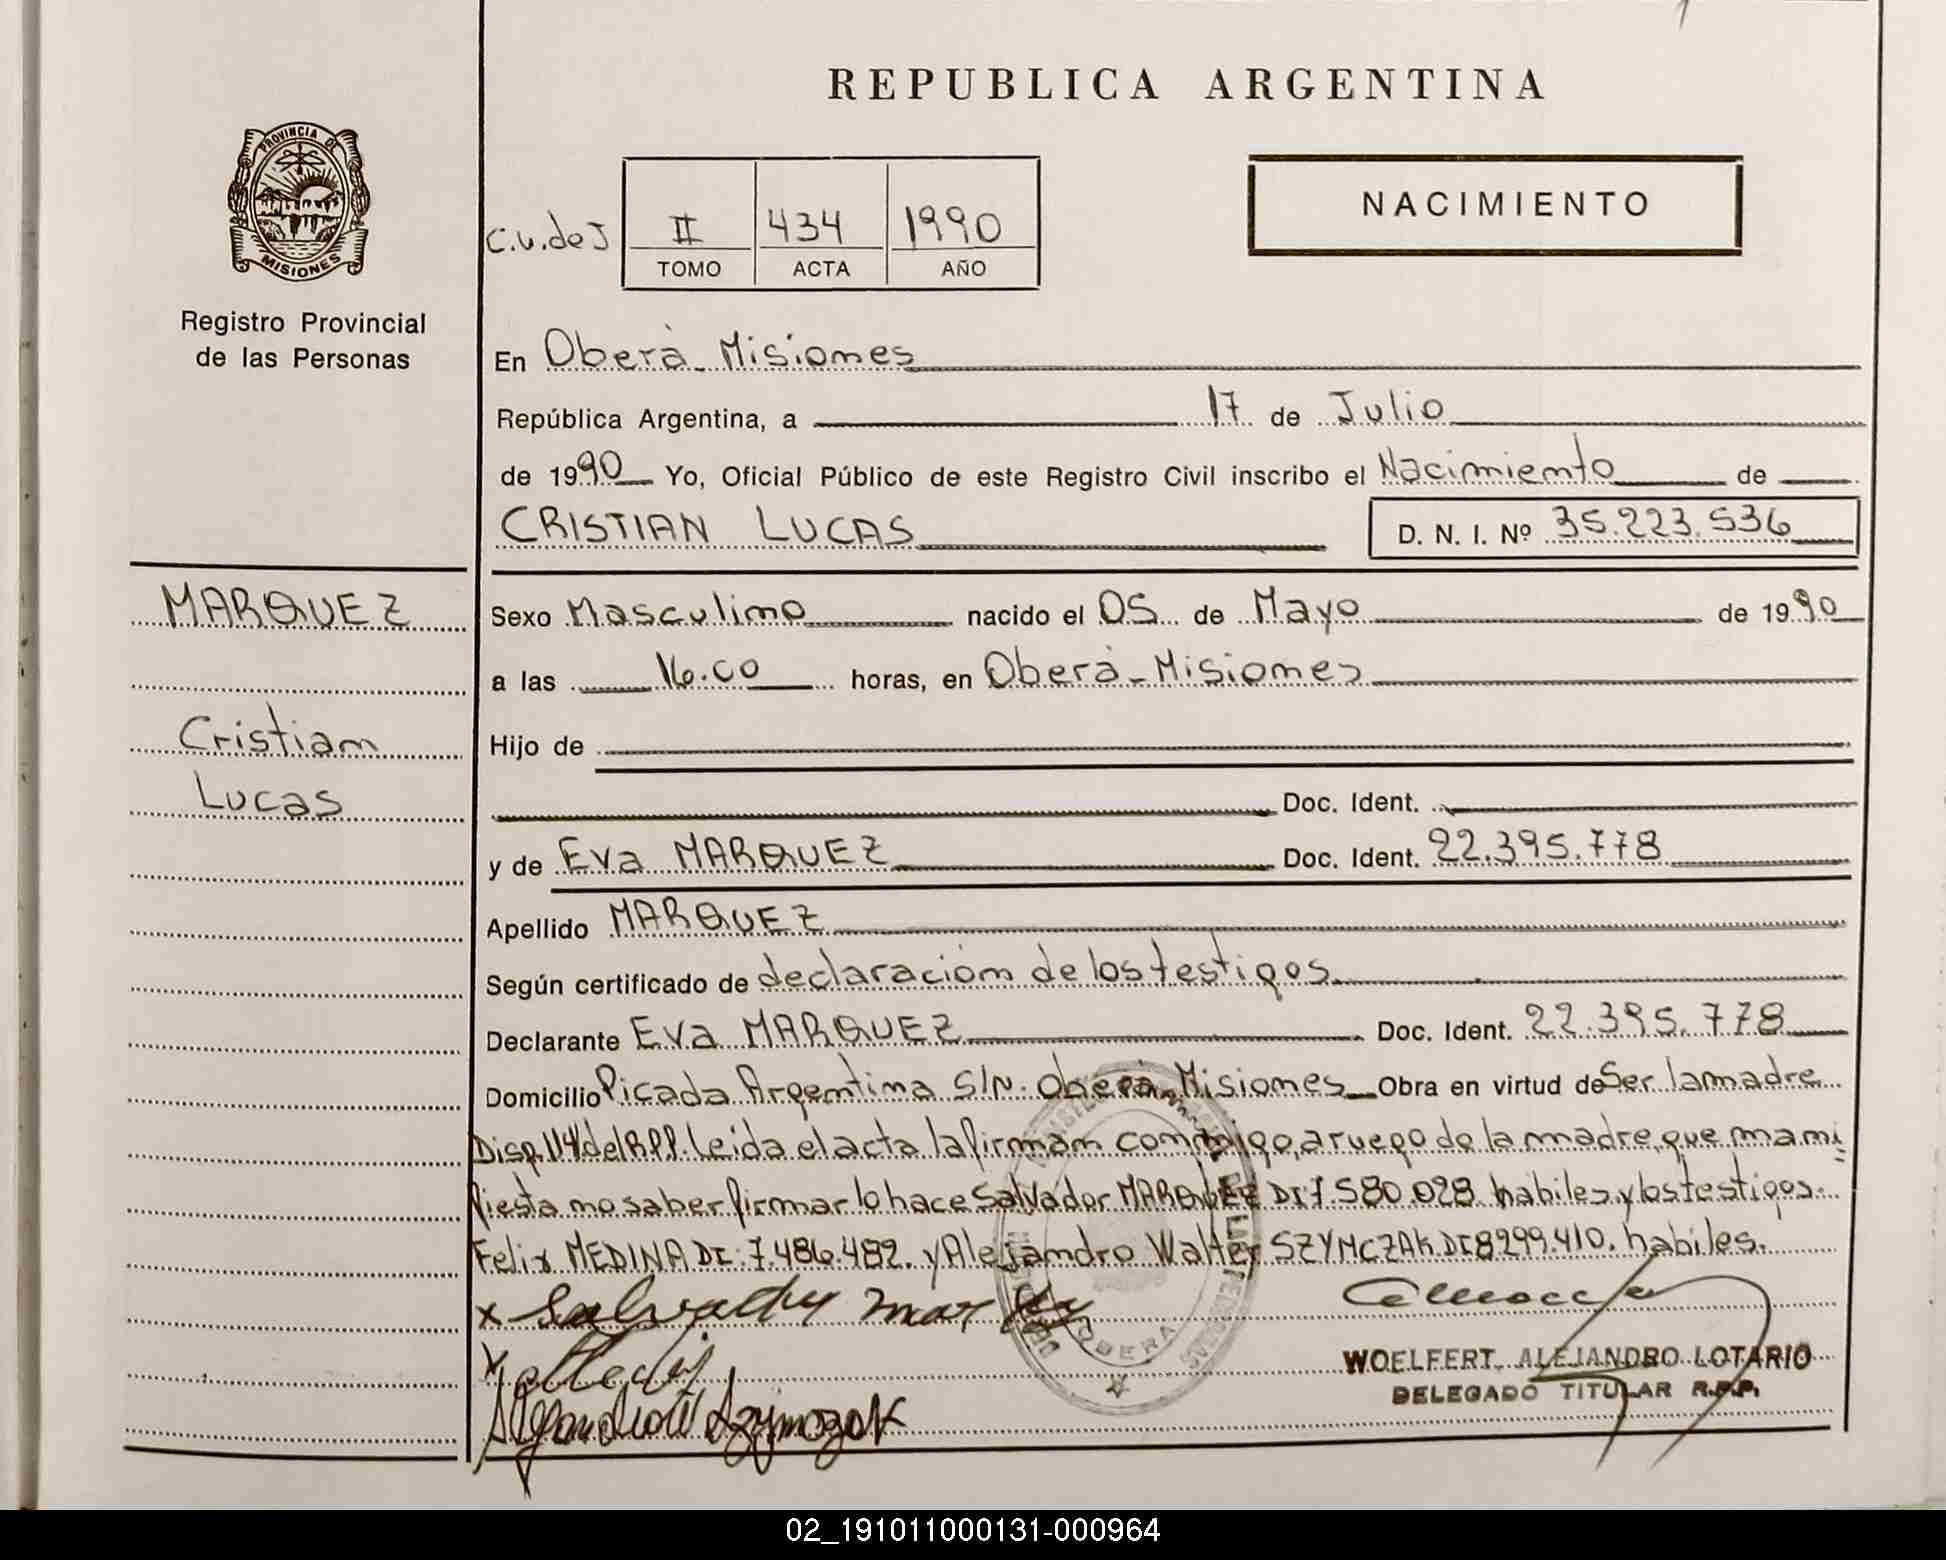 REPUBLICA ARGENTINA
PROVINCIA DE
MISIONES
Registro Provincial
de las Personas
C.U. de J
II 434 1990
TOMO ACTA AÑO
NACIMIENTO
En Oberà - Misiones
República Argentina, a 17 de Julio
de 1990 Yo, Oficial Público de este Registro Civil inscribo el Nacimiento de
CRISTIAN LUCAS D. N. I. Nº 35.223.536
MARQUEZ
Cristian
Lucas
Sexo Masculino nacido el 05 de Mayo de 1990
a las 16.00 horas, en Oberà - Misiones
Hijo de
Doc. Ident.
y de Eva MARQUEZ Doc. Ident. 22.395.778
Apellido MARQUEZ
Según certificado de declaración de los testigos
Declarante Eva MARQUEZ Doc. Ident. 22.395.778
Domicilio Picada Argentina S/N. Oberà Misiones Obra en virtud de Ser la madre
Disp. 114 del R.P.P. Leida el acta la firman conmigo, a ruego de la madre, que mani
fiesta no saber firmar lo hace Salvador MARQUEZ DI 7.580.028 habiles y los testigos
Felix MEDINA DI: 7.486.482. y Alejandro Walter SZYMCZAK DI 8299.410. habiles.
WOELFERT, ALEJANDRO LOTARIO
DELEGADO TITULAR R.P.P.
OBERA
02_191011000131-000964